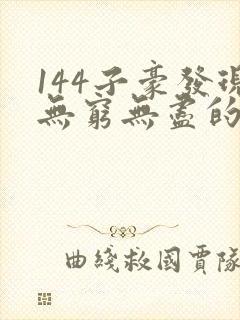 144子豪發現
無窮無盡的
曲綫救國賈隊